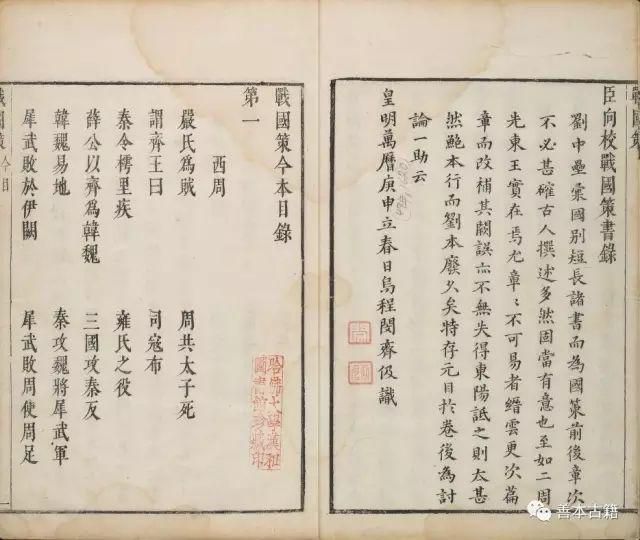 戰國策
臣向校戰國策書錄
劉中壘彙國別短長諸書而為國策前後章次
不必甚確古人撰述多然固當有意也至如二周
先東王實在焉尤章〻不可易者縉雲更次篇
章而改補其闕誤亦不無失得東陽詆之則太甚
然鮑本行而劉本廢久矣特存元目於卷後為討
論一助云
皇明萬曆庚申立春日烏程閔齊伋識
戰國策今本目錄
第一
西周
嚴氏為賊 周共太子死
謂齊王曰 司寇布
秦令樗里疾 雍氏之役
薛公以齊為韓魏 三國攻秦反
韓魏易地 秦攻魏將犀武軍
犀武敗於伊闕 犀武敗周使周足
戰國策 今目
哈佛大學漢和
圖書館珍藏印
善本古籍